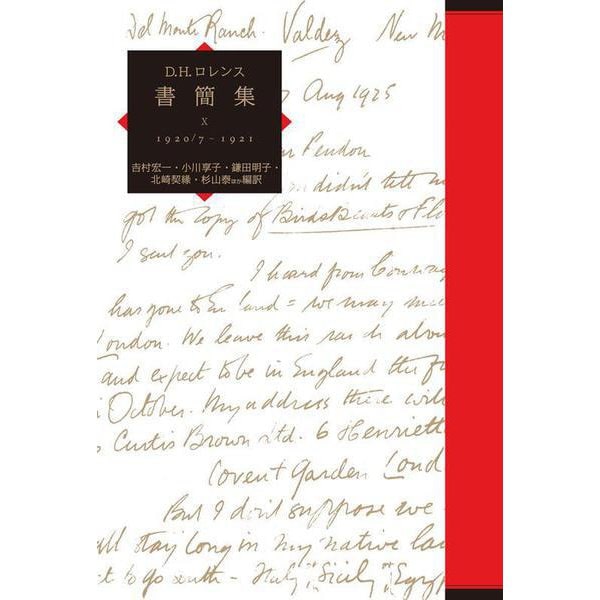 Del Monte Ranch. Valdez New M
D.H.ロレンス
書簡集
X
1920/7－1921
吉村宏一・小川享子・鎌田明子・
北崎契縁・杉山泰ほか編訳
7 Aug 1925
Pendon
didn't tell me
got the copy of Birds Beasts & Flo
I sent you.
I heard from Conway
has gone to England = we may
London. We leave this ranch abou
and expect to be in England the f
October. My address there will
Curtis Brown Ltd. 6 Henriett
Covent Garden Lond
But I don't suppose we
all stay long in my native la
t to go south - Italy, Sicily, Egyp